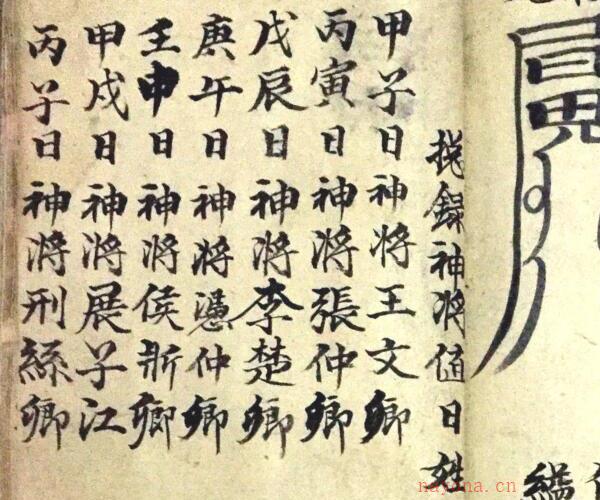 錄神將值日姓
甲子日神將王文卿
丙寅日神將張仲卿
戊辰日神將李楚卿
庚午日神將慿仲卿
壬申日神將侯卿
甲戌日神將展子江
丙子日神將刑絲卿
nayona.cn